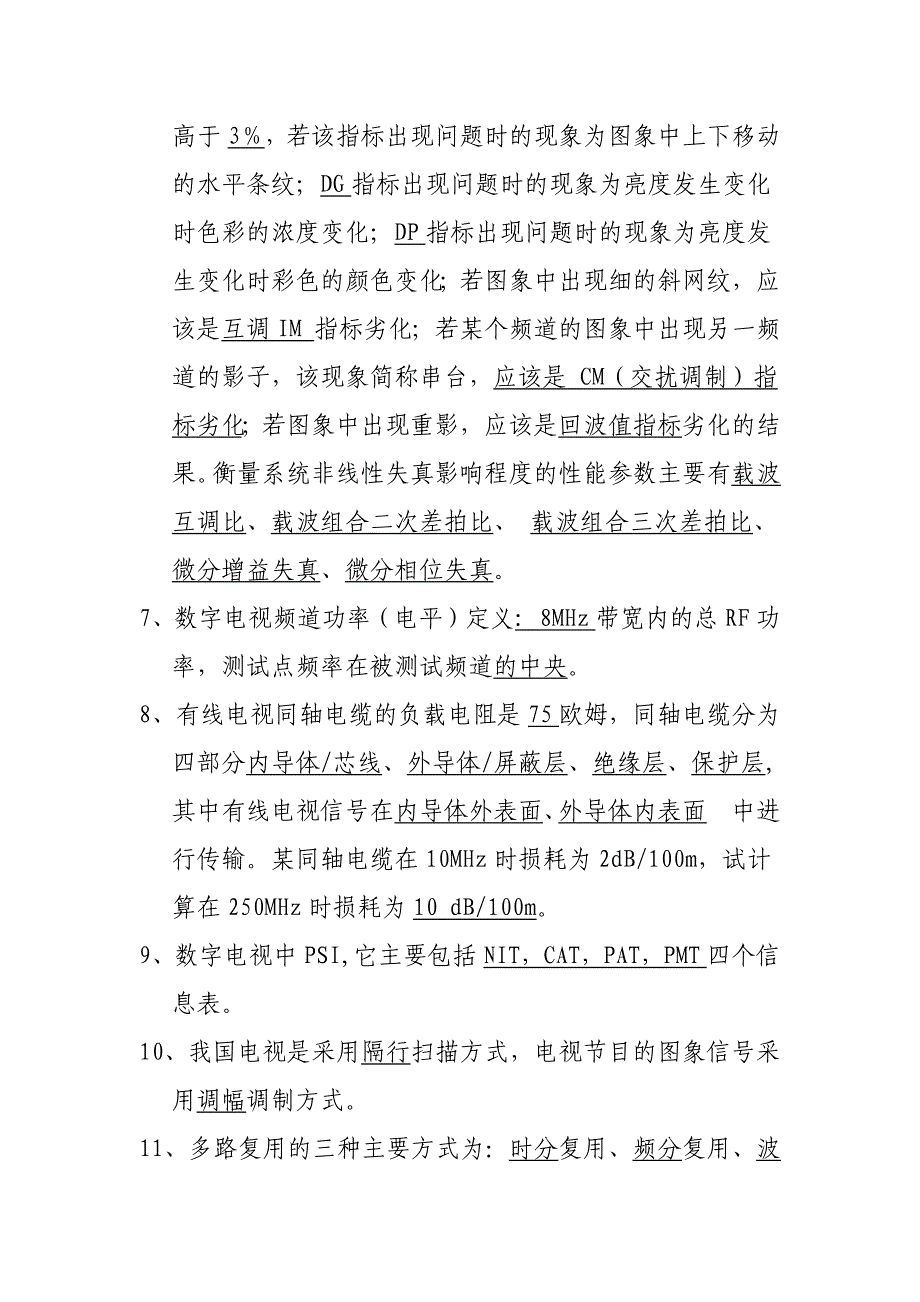 高于 3%，若该指标出现问题时的现象为图象中上下移动
的水平条纹；DG 指标出现问题时的现象为亮度发生变化
时色彩的浓度变化；DP 指标出现问题时的现象为亮度发
生变化时彩色的颜色变化；若图象中出现细的斜网纹，应
该是互调 IM 指标劣化；若某个频道的图象中出现另一频
道的影子，该现象简称串台，应该是 CM（交扰调制）指
标劣化；若图象中出现重影，应该是回波值指标劣化的结
果。衡量系统非线性失真影响程度的性能参数主要有载波
互调比、载波组合二次差拍比、 载波组合三次差拍比、
微分增益失真、微分相位失真。
7、数字电视频道功率（电平）定义：8MHz 带宽内的总 RF 功
率，测试点频率在被测试频道的中央。
8、有线电视同轴电缆的负载电阻是 75 欧姆，同轴电缆分为
四部分内导体/芯线、外导体/屏蔽层、绝缘层、保护层，
其中有线电视信号在内导体外表面、外导体内表面 中进
行传输。某同轴电缆在 10MHz 时损耗为 2dB/100m，试计
算在 250MHz 时损耗为 10 dB/100m。
9、数字电视中 PSI,它主要包括 NIT，CAT，PAT，PMT 四个信
息表。
10、我国电视是采用隔行扫描方式，电视节目的图象信号采
用调幅调制方式。
11、多路复用的三种主要方式为：时分复用、频分复用、波